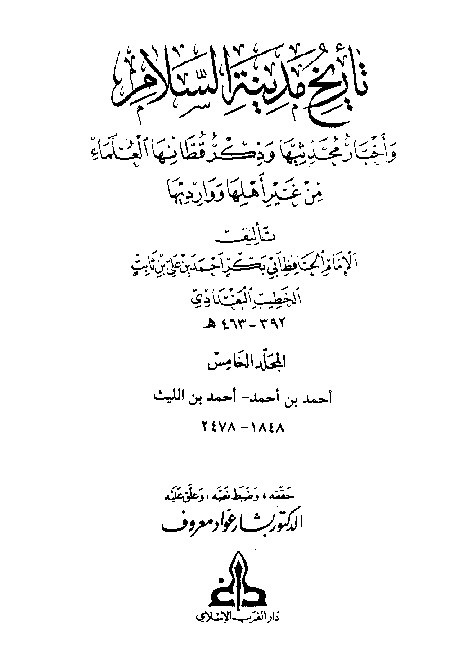 تأريخ مدينة السلام
وأخبار محدثيها وذكر قطانها العلماء
من غير أهلها ووارديها
تأليف
الإمام الحافظ أبي بكر أحمد بن علي بن ثابت
الخطيب البغدادي
٣٩٢ - ٤٦٣ هـ
المجلد الخامس
أحمد بن أحمد - أحمد بن الليث
١٨٤٨ - ٢٤٧٨
حققه، وضبط نصه، وعلق عليه
الدكتور بشار عواد معروف
دار الغرب الإسلامي